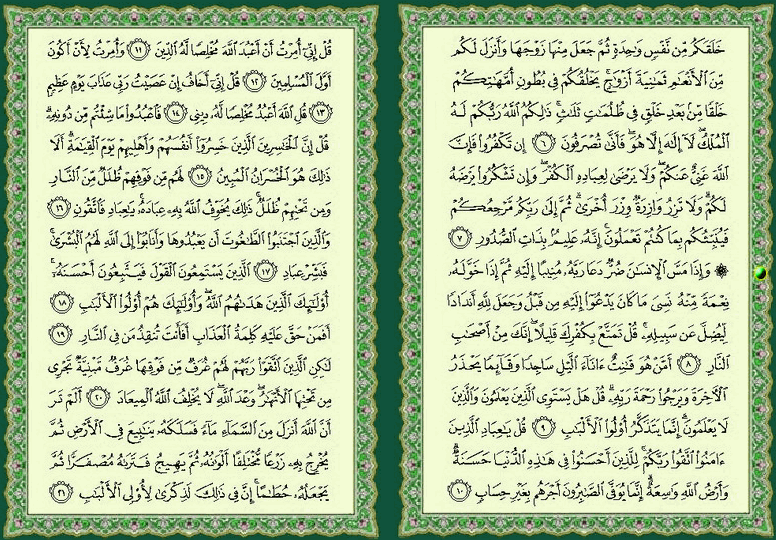 خَلَقَكُم مِّن نَّفْسٍ وَٰحِدَةٍ ثُمَّ جَعَلَ مِنْهَا زَوْجَهَا وَأَنزَلَ لَكُم
مِّنَ ٱلْأَنْعَٰمِ ثَمَٰنِيَةَ أَزْوَٰجٍ ۚ يَخْلُقُكُمْ فِى بُطُونِ أُمَّهَٰتِكُمْ
خَلْقًا مِّنۢ بَعْدِ خَلْقٍ فِى ظُلُمَٰتٍ ثَلَٰثٍ ۚ ذَٰلِكُمُ ٱللَّهُ رَبُّكُمْ لَهُ
ٱلْمُلْكُ ۖ لَآ إِلَٰهَ إِلَّا هُوَ ۖ فَأَنَّىٰ تُصْرَفُونَ ٦ إِن تَكْفُرُوا۟ فَإِنَّ
ٱللَّهَ غَنِىٌّ عَنكُمْ ۖ وَلَا يَرْضَىٰ لِعِبَادِهِ ٱلْكُفْرَ ۖ وَإِن تَشْكُرُوا۟ يَرْضَهُ
لَكُمْ ۗ وَلَا تَزِرُ وَازِرَةٌ وِزْرَ أُخْرَىٰ ۗ ثُمَّ إِلَىٰ رَبِّكُم مَّرْجِعُكُمْ
فَيُنَبِّئُكُم بِمَا كُنتُمْ تَعْمَلُونَ ۚ إِنَّهُۥ عَلِيمٌۢ بِذَاتِ ٱلصُّدُورِ ٧
۞ وَإِذَا مَسَّ ٱلْإِنسَٰنَ ضُرٌّ دَعَا رَبَّهُۥ مُنِيبًا إِلَيْهِ ثُمَّ إِذَا خَوَّلَهُۥ
نِعْمَةً مِّنْهُ نَسِىَ مَا كَانَ يَدْعُوٓا۟ إِلَيْهِ مِن قَبْلُ وَجَعَلَ لِلَّهِ أَندَادًا
لِّيُضِلَّ عَن سَبِيلِهِۦ ۚ قُلْ تَمَتَّعْ بِكُفْرِكَ قَلِيلًا ۖ إِنَّكَ مِنْ أَصْحَٰبِ
ٱلنَّارِ ٨ أَمَّنْ هُوَ قَٰنِتٌ ءَانَآءَ ٱلَّيْلِ سَاجِدًا وَقَآئِمًا يَحْذَرُ
ٱلْءَاخِرَةَ وَيَرْجُوا۟ رَحْمَةَ رَبِّهِۦ ۗ قُلْ هَلْ يَسْتَوِى ٱلَّذِينَ يَعْلَمُونَ وَٱلَّذِينَ
لَا يَعْلَمُونَ ۗ إِنَّمَا يَتَذَكَّرُ أُو۟لُوا۟ ٱلْأَلْبَٰبِ ٩ قُلْ يَٰعِبَادِ ٱلَّذِينَ
ءَامَنُوا۟ ٱتَّقُوا۟ رَبَّكُمْ ۚ لِلَّذِينَ أَحْسَنُوا۟ فِى هَٰذِهِ ٱلدُّنْيَا حَسَنَةٌ ۗ
وَأَرْضُ ٱللَّهِ وَٰسِعَةٌ ۗ إِنَّمَا يُوَفَّى ٱلصَّٰبِرُونَ أَجْرَهُم بِغَيْرِ حِسَابٍ ١٠
قُلْ إِنِّىٓ أُمِرْتُ أَنْ أَعْبُدَ ٱللَّهَ مُخْلِصًا لَّهُ ٱلدِّينَ ١١ وَأُمِرْتُ لِأَنْ أَكُونَ
أَوَّلَ ٱلْمُسْلِمِينَ ١٢ قُلْ إِنِّىٓ أَخَافُ إِنْ عَصَيْتُ رَبِّى عَذَابَ يَوْمٍ عَظِيمٍ
١٣ قُلِ ٱللَّهَ أَعْبُدُ مُخْلِصًا لَّهُۥ دِينِى ١٤ فَٱعْبُدُوا۟ مَا شِئْتُم مِّن دُونِهِۦ ۗ
قُلْ إِنَّ ٱلْخَٰسِرِينَ ٱلَّذِينَ خَسِرُوٓا۟ أَنفُسَهُمْ وَأَهْلِيهِمْ يَوْمَ ٱلْقِيَٰمَةِ ۗ أَلَا
ذَٰلِكَ هُوَ ٱلْخُسْرَانُ ٱلْمُبِينُ ١٥ لَهُم مِّن فَوْقِهِمْ ظُلَلٌ مِّنَ ٱلنَّارِ
وَمِن تَحْتِهِمْ ظُلَلٌ ۚ ذَٰلِكَ يُخَوِّفُ ٱللَّهُ بِهِۦ عِبَادَهُۥ ۚ يَٰعِبَادِ فَٱتَّقُونِ ١٦
وَٱلَّذِينَ ٱجْتَنَبُوا۟ ٱلطَّٰغُوتَ أَن يَعْبُدُوهَا وَأَنَابُوٓا۟ إِلَى ٱللَّهِ لَهُمُ ٱلْبُشْرَىٰ ۚ
فَبَشِّرْ عِبَادِ ١٧ ٱلَّذِينَ يَسْتَمِعُونَ ٱلْقَوْلَ فَيَتَّبِعُونَ أَحْسَنَهُۥٓ ۚ
أُو۟لَٰٓئِكَ ٱلَّذِينَ هَدَىٰهُمُ ٱللَّهُ ۖ وَأُو۟لَٰٓئِكَ هُمْ أُو۟لُوا۟ ٱلْأَلْبَٰبِ ١٨
أَفَمَنْ حَقَّ عَلَيْهِ كَلِمَةُ ٱلْعَذَابِ أَفَأَنتَ تُنقِذُ مَن فِى ٱلنَّارِ ١٩
لَٰكِنِ ٱلَّذِينَ ٱتَّقَوْا۟ رَبَّهُمْ لَهُمْ غُرَفٌ مِّن فَوْقِهَا غُرَفٌ مَّبْنِيَّةٌ تَجْرِى
مِن تَحْتِهَا ٱلْأَنْهَٰرُ ۖ وَعْدَ ٱللَّهِ ۖ لَا يُخْلِفُ ٱللَّهُ ٱلْمِيعَادَ ٢٠ أَلَمْ تَرَ
أَنَّ ٱللَّهَ أَنزَلَ مِنَ ٱلسَّمَآءِ مَآءً فَسَلَكَهُۥ يَنَٰبِيعَ فِى ٱلْأَرْضِ ثُمَّ
يُخْرِجُ بِهِۦ زَرْعًا مُّخْتَلِفًا أَلْوَٰنُهُۥ ثُمَّ يَهِيجُ فَتَرَىٰهُ مُصْفَرًّا ثُمَّ
يَجْعَلُهُۥ حُطَٰمًا ۚ إِنَّ فِى ذَٰلِكَ لَذِكْرَىٰ لِأُو۟لِى ٱلْأَلْبَٰبِ ٢١